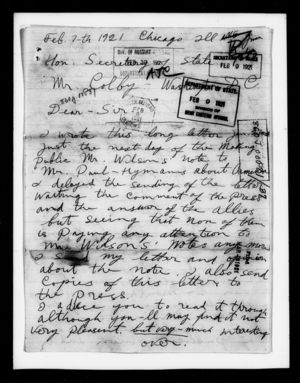 Feb. 7-th 1921 Chicago Ill
Hon. Secretary of State
Mr Colby Washington D.C
Dear-Sir
I wrote this long letter
just the next day of the making
public Mr. Wilson's note to
Mr. Paul-Hymanns about
I delayed the sending of the letter
waiting the comment of the Press
and the answer of the Allies
but seeing that non of them
is Paying any attention to
Mr Wilson's Notes any more
I my letter and
about the note. I also send
Copies of this letter to
the Press.
I advice you to read it through
although you-ll may find it not
very pleasent, but very-much interesting
over.
DEPARTMENT OF STATE
FEB 9 1921
FEB 9 1921